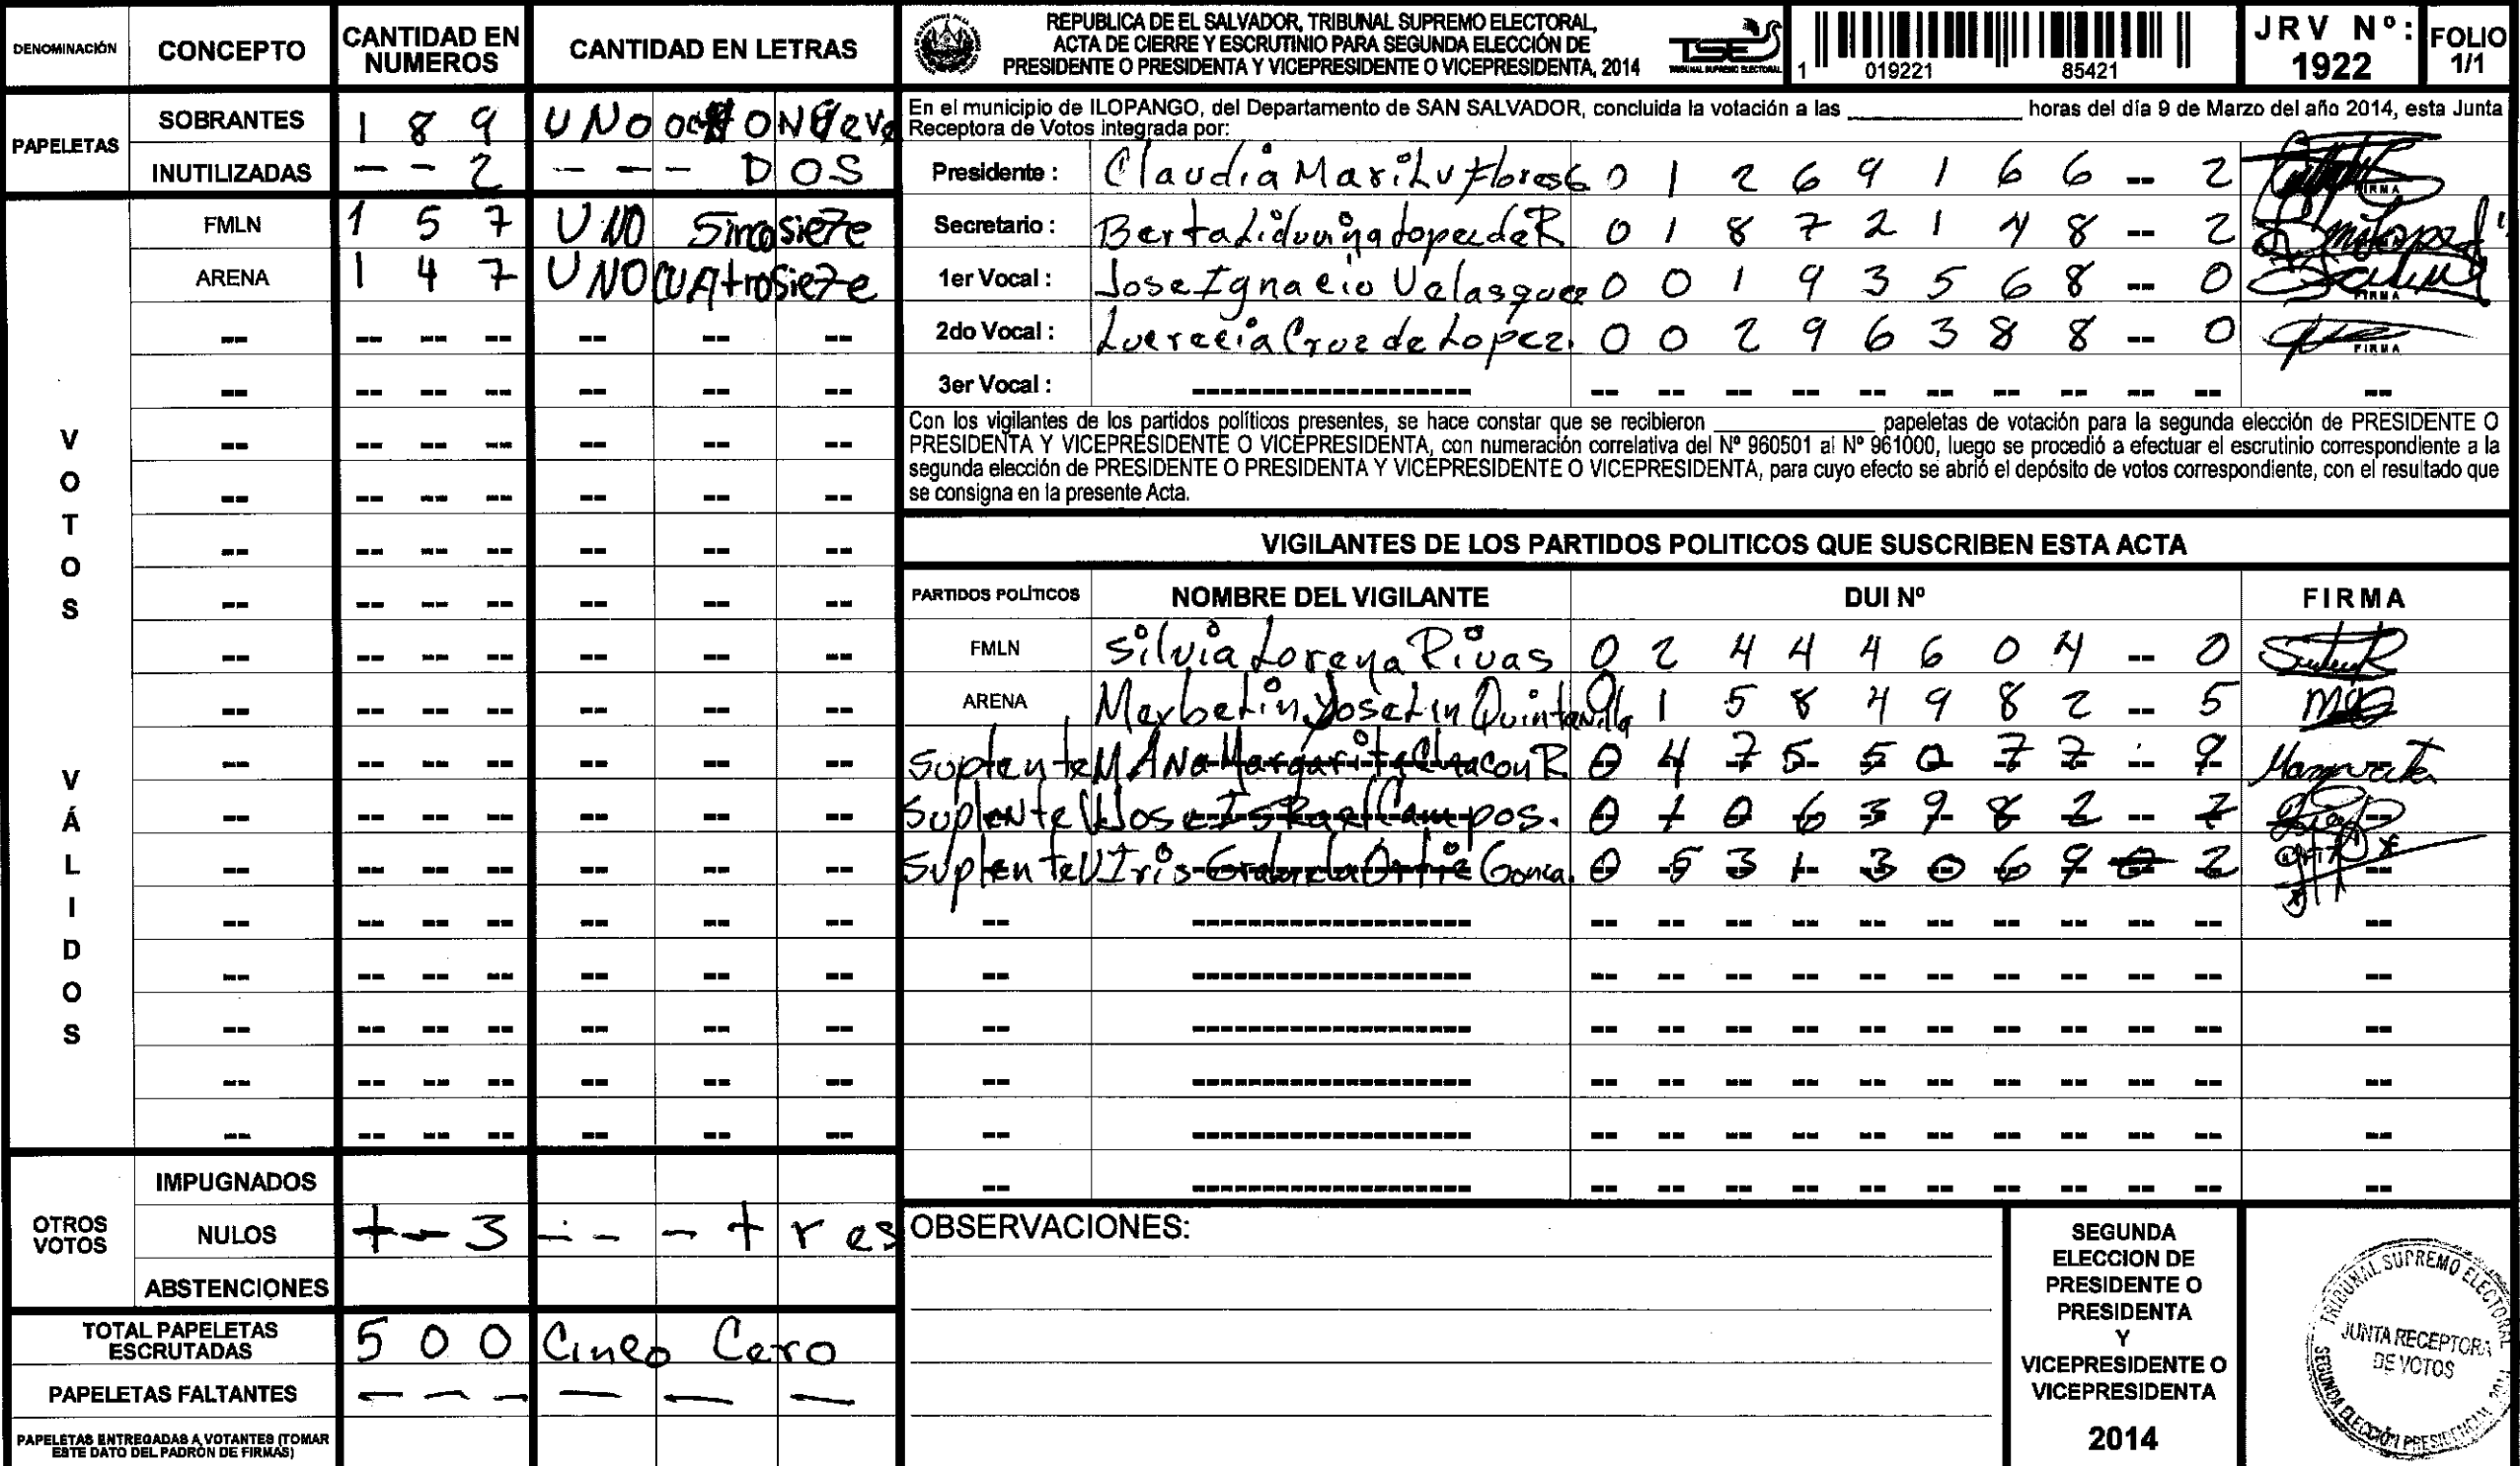 DENOMINACIÓN CONCEPTO CANTIDAD EN NUMEROS CANTIDAD EN LETRAS
PAPELETAS
SOBRANTES 1 8 9 UNO OCHO NUeve
INUTILIZADAS -- -- 2 -- -- -- DOS
VOTOS VÁLIDOS
FMLN 1 5 7 UNO Sinco sieTe
ARENA 1 4 7 UNO CUAtro SieTe
OTROS VOTOS
IMPUGNADOS
NULOS -- -- 3 -- -- -- tres
ABSTENCIONES
TOTAL PAPELETAS ESCRUTADAS 5 0 0 Cinco Cero
PAPELETAS FALTANTES -- -- -- -- -- --
PAPELETAS ENTREGADAS A VOTANTES (TOMAR ESTE DATO DEL PADRÓN DE FIRMAS)
REPUBLICA DE EL SALVADOR, TRIBUNAL SUPREMO ELECTORAL,
ACTA DE CIERRE Y ESCRUTINIO PARA SEGUNDA ELECCIÓN DE
PRESIDENTE O PRESIDENTA Y VICEPRESIDENTE O VICEPRESIDENTA, 2014
TSE
TRIBUNAL SUPREMO ELECTORAL
1 019221 85421
JRV Nº: 1922
FOLIO 1/1
En el municipio de ILOPANGO, del Departamento de SAN SALVADOR, concluida la votación a las ____ horas del día 9 de Marzo del año 2014, esta Junta
Receptora de Votos integrada por:
Presidente : Claudia MariLu Flores G 0 1 2 6 9 1 6 6 -- 2 FIRMA
Secretario : Berta Liduvina Lopez de R 0 1 8 7 2 1 4 8 -- 2
1er Vocal : Jose Ignacio Velasquez 0 0 1 9 3 5 6 8 -- 0 FIRMA
2do Vocal : Lucrecia Cruz de Lopez. 0 0 2 9 6 3 8 8 -- 0 FIRMA
3er Vocal :
Con los vigilantes de los partidos políticos presentes, se hace constar que se recibieron ____ papeletas de votación para la segunda elección de PRESIDENTE O
PRESIDENTA Y VICEPRESIDENTE O VICEPRESIDENTA, con numeración correlativa del Nº 960501 al Nº 961000, luego se procedió a efectuar el escrutinio correspondiente a la
segunda elección de PRESIDENTE O PRESIDENTA Y VICEPRESIDENTE O VICEPRESIDENTA, para cuyo efecto se abrió el depósito de votos correspondiente, con el resultado que
se consigna en la presente Acta.
VIGILANTES DE LOS PARTIDOS POLITICOS QUE SUSCRIBEN ESTA ACTA
PARTIDOS POLÍTICOS NOMBRE DEL VIGILANTE DUI Nº FIRMA
FMLN Silvia Lorena Rivas 0 2 4 4 4 6 0 4 -- 0
ARENA Merbelin Joselin Quintanilla 0 1 5 8 4 9 8 2 -- 5
Suplente M ANa Margarita Chacon R 0 4 7 5 5 0 7 7 -- 9 Margarita
Suplente V Jose IsRael Campos. 0 1 0 6 3 9 8 2 -- 7
Suplente V Iris Ortiz 0 5 3 1 3 0 6 9 -- 2
OBSERVACIONES:
SEGUNDA
ELECCION DE
PRESIDENTE O
PRESIDENTA
Y
VICEPRESIDENTE O
VICEPRESIDENTA
2014
TRIBUNAL SUPREMO ELECTORAL
JUNTA RECEPTORA
DE VOTOS
SEGUNDA ELECCIÓN PRESIDENCIAL